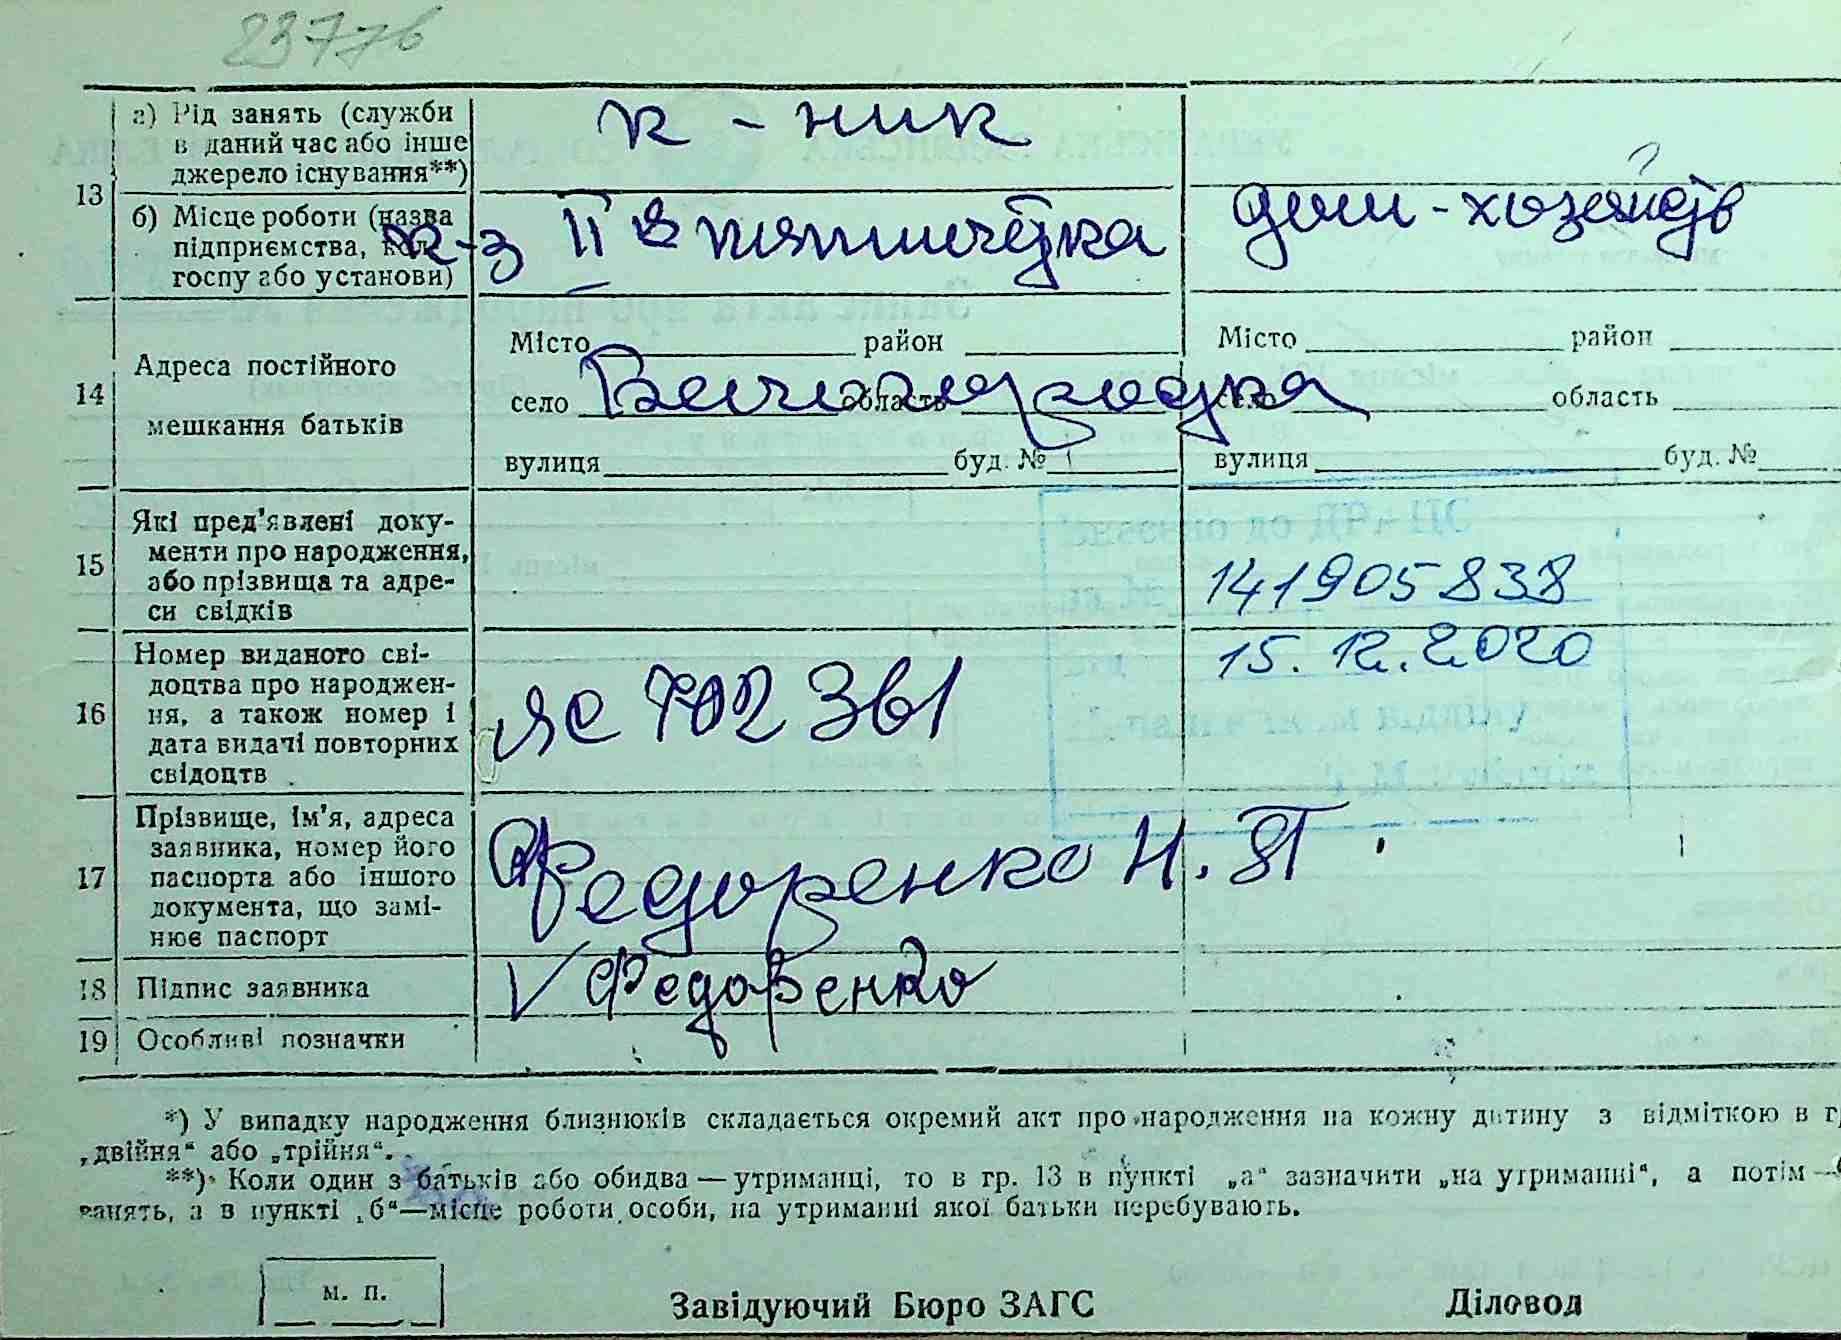 2377в
13
а) Рід занять (служби
в даний час або інше
джерело існування**)
к-ник
б) Місце роботи (назва
підприємства, кол-
госпу або установи)
к-з ІІ П'ятирічка
дом-хозяйств
14
Адреса постійного
мешкання батьків
Місто район
село область
вулиця буд. №
Місто район
село область
вулиця буд. №
15
Які пред'явлені доку-
менти про народження,
або прізвища та адре-
си свідків
141905838
16
Номер виданого сві-
доцтва про народжен-
ня, а також номер і
дата видачі повторних
свідоцтв
ЯС 702361
15.12.2020
17
Прізвище, ім'я, адреса
заявника, номер його
паспорта або іншого
документа, що замі-
нює паспорт
Федоренко Н. П.
18
Підпис заявника
Федоренко
19
Особливі позначки
*) У випадку народження близнюків складається окремий акт про народження на кожну дитину з відміткою в гр
„двійня“ або „трійня“.
**) Коли один з батьків або обидва — утриманці, то в гр. 13 в пункті „а“ зазначити „на утриманні“, а потім —
занять, а в пункті „б“—місце роботи особи, на утриманні якої батьки перебувають.
м. п.
Завідуючий Бюро ЗАГС
Діловод